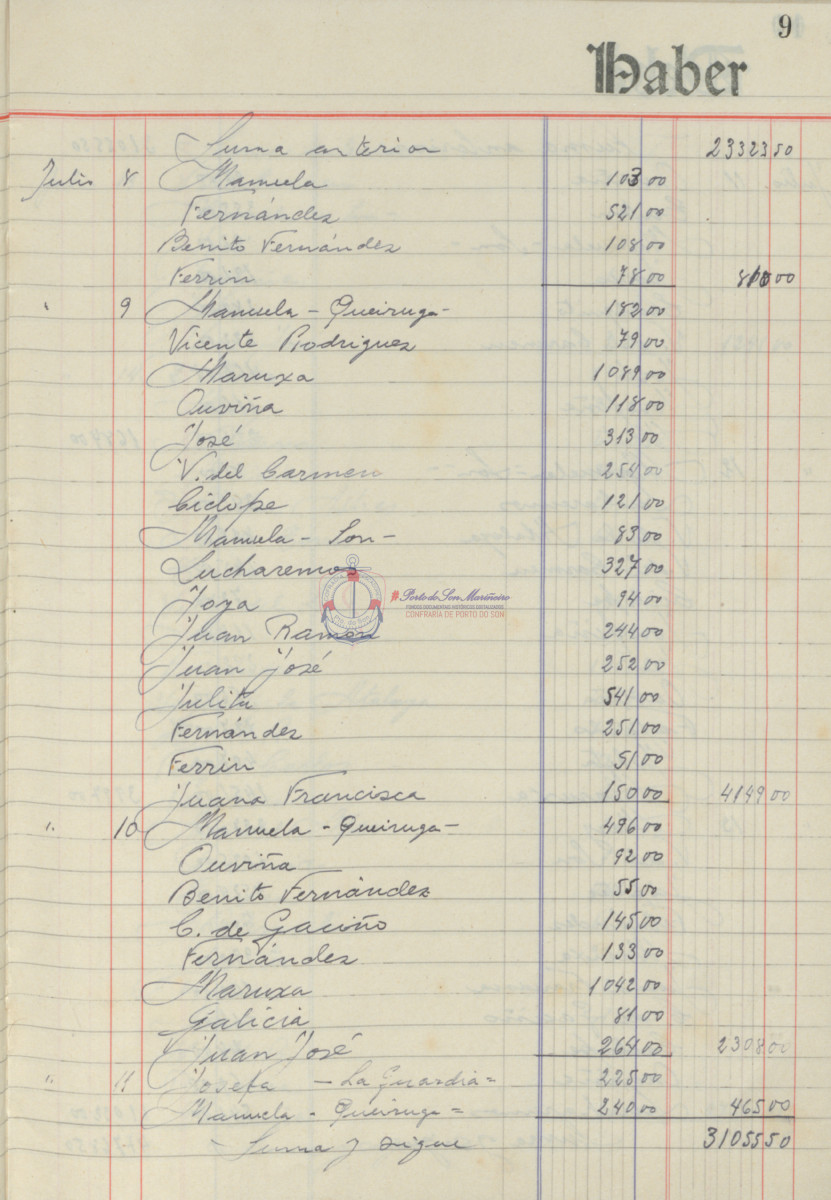 9
Haber
Suma anterior 23323 50
Julio 8 Manuela 103 00
Fernández 521 00
Benito Fernández 108 00
Ferrin 78 00 810 00
" 9 Manuela - Queiruga - 182 00
Vicente Rodriguez 79 00
Maruxa 1089 00
Ouviña 118 00
José 313 00
V. del Carmen 254 00
Ciclope 121 00
Manuela - Son - 83 00
Lucharemos 327 00
Joya 94 00
Juan Ramón 244 00
Juan José 252 00
Julita 541 00
Fernández 251 00
Ferrin 51 00
Juana Francisca 150 00 4149 00
" 10 Manuela - Queiruga - 496 00
Ouviña 92 00
Benito Fernández 55 00
C. de Gaciño 145 00
Fernández 133 00
Maruxa 1042 00
Galicia 81 00
Juan José 264 00 2308 00
" 11 Josefa - La Guardia = 225 00
Manuela - Queiruga = 240 00 465 00
Suma y sigue 31055 50
#Porto do Son Mariñeiro
FONDOS DOCUMENTAIS HISTÓRICOS DIXITALIZADOS
CONFRARÍA DE PORTO DO SON